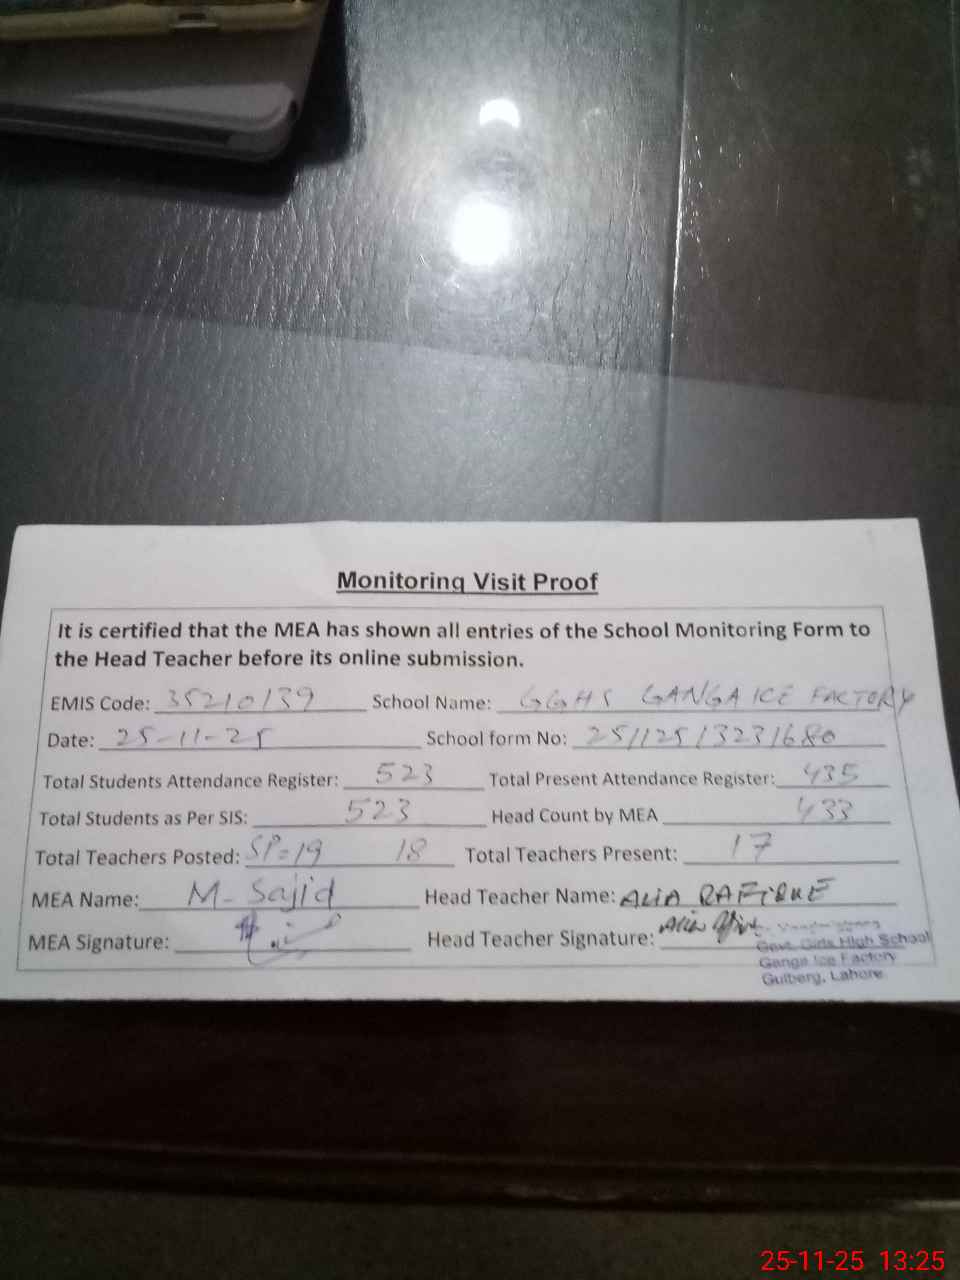 Monitoring Visit Proof
It is certified that the MEA has shown all entries of the School Monitoring Form to
the Head Teacher before its online submission.
EMIS Code: 35210139 School Name: GGHS GANGA ICE FACTORY
Date: 25-11-25 School form No: 25112513231680
Total Students Attendance Register: 523 Total Present Attendance Register: 435
Total Students as Per SIS: 523 Head Count by MEA 433
Total Teachers Posted: SP=19 18 Total Teachers Present: 17
MEA Name: M-Sajid Head Teacher Name: ALIA RAFIQUE
MEA Signature: Head Teacher Signature: Alia
Govt. Girls High School
Ganga Ice Factory
Gulberg, Lahore
25-11-25 13:25